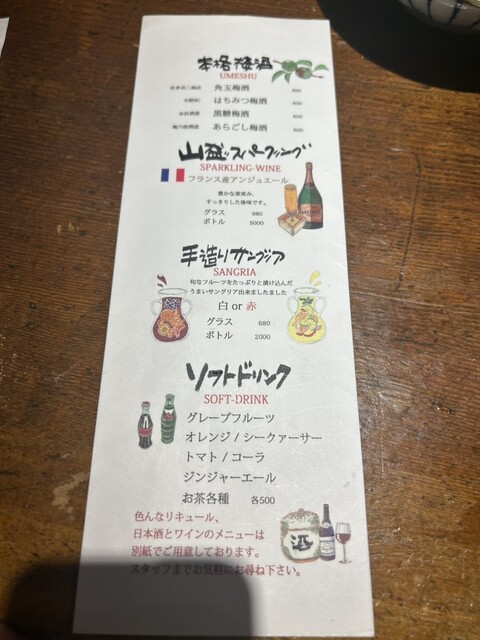 本格梅酒
UMESHU
角玉梅酒
はちみつ梅酒
黒糖梅酒
あらごし梅酒
山盛りスパークリング
SPARKLING-WINE
フランス産アンジュエール
豊かな果実み、
すっきりした後味です。
グラス 980
ボトル 5000
手造りサングリア
SANGRIA
旬なフルーツをたっぷりと漬け込んだ
うまいサングリア出来ましたました
白 or 赤
グラス 680
ボトル 2000
ソフトドリンク
SOFT-DRINK
グレープフルーツ
オレンジ / シークァーサー
トマト / コーラ
ジンジャーエール
お茶各種 各500
色んなリキュール、
日本酒とワインのメニューは
別紙でご用意しております。
スタッフまでお気軽にお尋ね下さい。
酒